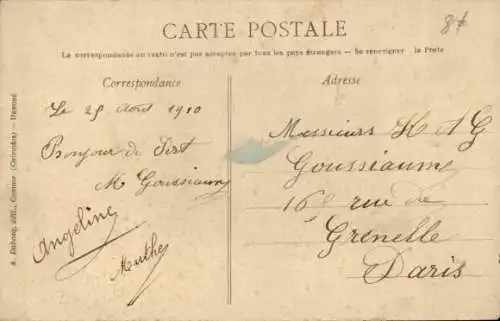 8f
CARTE POSTALE
La correspondance au recto n'est pas acceptée par tous les pays étrangers — Se renseigner à la Poste
Correspondance
Adresse
Le 25 Août 1910
Bonjour de
M Goussiaume
Angeline
Marthe
Messieurs H et G
Goussiaume
16 rue de
Grenelle
Paris